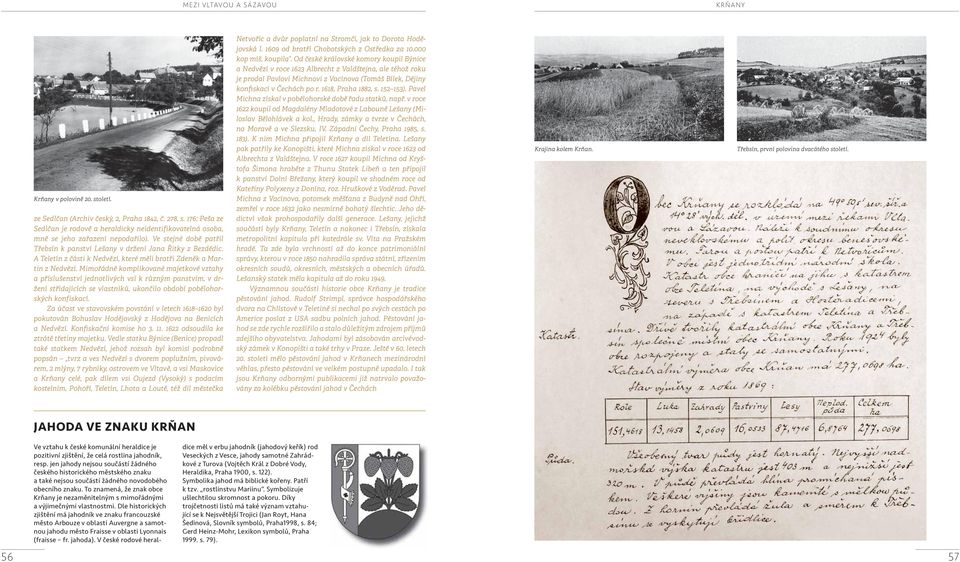 MEZI VLTAVOU A SÁZAVOU
KRŇANY
Krňany v polovině 20. století.
ze Sedlčan (Archiv český, 2, Praha 1842, č. 278, s. 176; Peša ze
Sedlčan je rodově a heraldicky neidentifikovatelná osoba,
mně se jeho zařazení nepodařilo). Ve stejné době patřil
Třebsín k panství Lešany v držení Jana Řitky z Bezdědic.
A Teletín z části k Nedvězí, které měli bratři Zdeněk a Mar-
tin z Nedvězí. Mimořádně komplikované majetkové vztahy
a příslušenství jednotlivých vsí k různým panstvím, v dr-
žení střídajících se vlastníků, ukončilo období pobělohor-
ských konfiskací.
Za účast ve stavovském povstání v letech 1618–1620 byl
pokutován Bohuslav Hodějovský z Hodějova na Benicích
a Nedvězí. Konfiskační komise ho 3. 11. 1622 odsoudila ke
ztrátě třetiny majetku. Vedle statku Býnice (Benice) propadl
také statkem Nedvězí, jehož rozsah byl komisí podrobně
popsán – „tvrz a ves Nedvězí s dvorem poplužním, pivová-
rem, 2 mlýny, 7 rybníky, ostrovem ve Vltavě, a vsi Maskovice
a Krňany celé, pak dílem vsi Oujezd (Vysoký) s podacím
kostelním, Pohoří, Teletín, Lhota a Loutě, též díl městečka
Netvořic a dvůr poplatní na Stromči, jak to Dorota Hodě-
jovská l. 1609 od bratří Chobotských z Ostředka za 10.000
kop míš. koupila“. Od české královské komory koupil Býnice
a Nedvězí v roce 1623 Albrecht z Valdštejna, ale téhož roku
je prodal Pavlovi Michnovi z Vacínova (Tomáš Bílek, Dějiny
konfiskací v Čechách po r. 1618, Praha 1882, s. 152–153). Pavel
Michna získal v pobělohorské době řadu statků, např. v roce
1622 koupil od Magdalény Mladotové z Labouně Lešany (Mi-
loslav Bělohlávek a kol., Hrady, zámky a tvrze v Čechách,
na Moravě a ve Slezsku, IV. Západní Čechy, Praha 1985, s.
183). K nim Michna připojil Krňany a díl Teletína. Lešany
pak patřily ke Konopišti, které Michna získal v roce 1623 od
Albrechta z Valdštejna. V roce 1627 koupil Michna od Kryš-
tofa Šimona hraběte z Thunu Statek Libeň a ten připojil
k panství Dolní Břežany, který koupil ve shodném roce od
Kateřiny Polyxeny z Donína, roz. Hruškové z Voděrad. Pavel
Michna z Vacínova, potomek měšťana z Budyně nad Ohří,
zemřel v roce 1632 jako nesmírně bohatý šlechtic. Jeho dě-
dictví však prohospodařily další generace. Lešany, jejichž
součástí byly Krňany, Teletín a nakonec i Třebsín, získala
metropolitní kapitula při katedrále sv. Víta na Pražském
hradě. Ta zde byla vrchností až do konce patrimoniální
správy, kterou v roce 1850 nahradila správa státní, zřízením
okresních soudů, okresních, městských a obecních úřadů.
Lešanský statek měla kapitula až do roku 1949.
Významnou součástí historie obce Krňany je tradice
pěstování jahod. Rudolf Strimpl, správce hospodářského
dvora na Chlístově v Teletíně si nechal po svých cestách po
Americe poslat z USA sadbu polních jahod. Pěstování ja-
hod se zde rychle rozšířilo a stalo důležitým zdrojem příjmů
zdejšího obyvatelstva. Jahodami byl zásobován arcivévod-
ský zámek v Konopišti a také trhy v Praze. Ještě v 60. letech
20. století mělo pěstování jahod v Krňanech mezinárodní
věhlas, přesto pěstování ve velkém postupně upadalo. I tak
jsou Krňany odbornými publikacemi již natrvalo považo-
vány za kolébku pěstování jahod v Čechách
JAHODA VE ZNAKU KRŇAN
Ve vztahu k české komunální heraldice je
pozitivní zjištění, že celá rostlina jahodník,
resp. jen jahody nejsou součástí žádného
českého historického městského znaku
a také nejsou součástí žádného novodobého
obecního znaku. To znamená, že znak obce
Krňany je nezaměnitelným s mimořádnými
a výjimečnými vlastnostmi. Dle historických
zjištění má jahodník ve znaku francouzské
město Arbouze v oblasti Auvergne a samot-
nou jahodu město Fraisse v oblasti Lyonnais
(fraisse – fr. jahoda). V české rodové heral-
dice měl v erbu jahodník (jahodový keřík) rod
Veseckých z Vesce, jahody samotné Zahrád-
kové z Turova (Vojtěch Král z Dobré Vody,
Heraldika, Praha 1900, s. 122).
Symbolika jahod má biblické kořeny. Patří
k tzv. „rostlinstvu Mariinu“. Symbolizuje
ušlechtilou skromnost a pokoru. Díky
trojčetnosti listů má také význam vztahu-
jící se k Nejsvětější Trojici (Jan Royt, Hana
Šedinová, Slovník symbolů, Praha1998, s. 84;
Gerd Heinz-Mohr, Lexikon symbolů, Praha
1999, s. 79).
56
Krajina kolem Krňan.
Třebsín, první polovina dvacátého století.
Obec Krňany se rozkládá na 49° 50½' sev. šíř. a
14° 28' vých. dél. v území mezi řekami Vlta-
vou a Sázavou. Náleží k soudnímu okresu
neveklovskému a polit. okresu benešovské-
mu. Farou a poštou patří k Netvořicům.
V obci jest jednotřídní národní škola.
Katastr obce hraničí na jihu s katastrem
obce Teletína, na východě s Lešany, na
severu s Třebsínem a Hostěradicemi,
na západě s katastrem Teletína a Třeb-
sína. Dříve tvořily katastrální obec Krňany a Třeb-
sín společnou místní obec Krňany. Roku 1924 byly
obce rozpojeny a staly se samostatnými.
Katastrální výměra obce Krňan má 277,0098 ha.
Stav výměry z roku 1869:
Katastr.
Role Luka Zahrady Pastviny Lesy Neplod. půda Celkem ha
151,4618 13,1458 2,0609 16,0533 87,4716 6,8764 277,0098
Půda.
Všeobecný tvar půdy jest hornatý. Nejnižší nad-
mořská výška jest v místě řeky Vltavy 215 m a nejvyšší
320 m. V Krňanech u školy jest nadmořská výška
320 m. Veškeré výšiny jsou kamenité s mělkou
půdou. Na výšinách jest nejvíce rozšířena žula.
V horním Třebsíně a směrem k Třeb-
sínu se vyskytují břidlice.
57